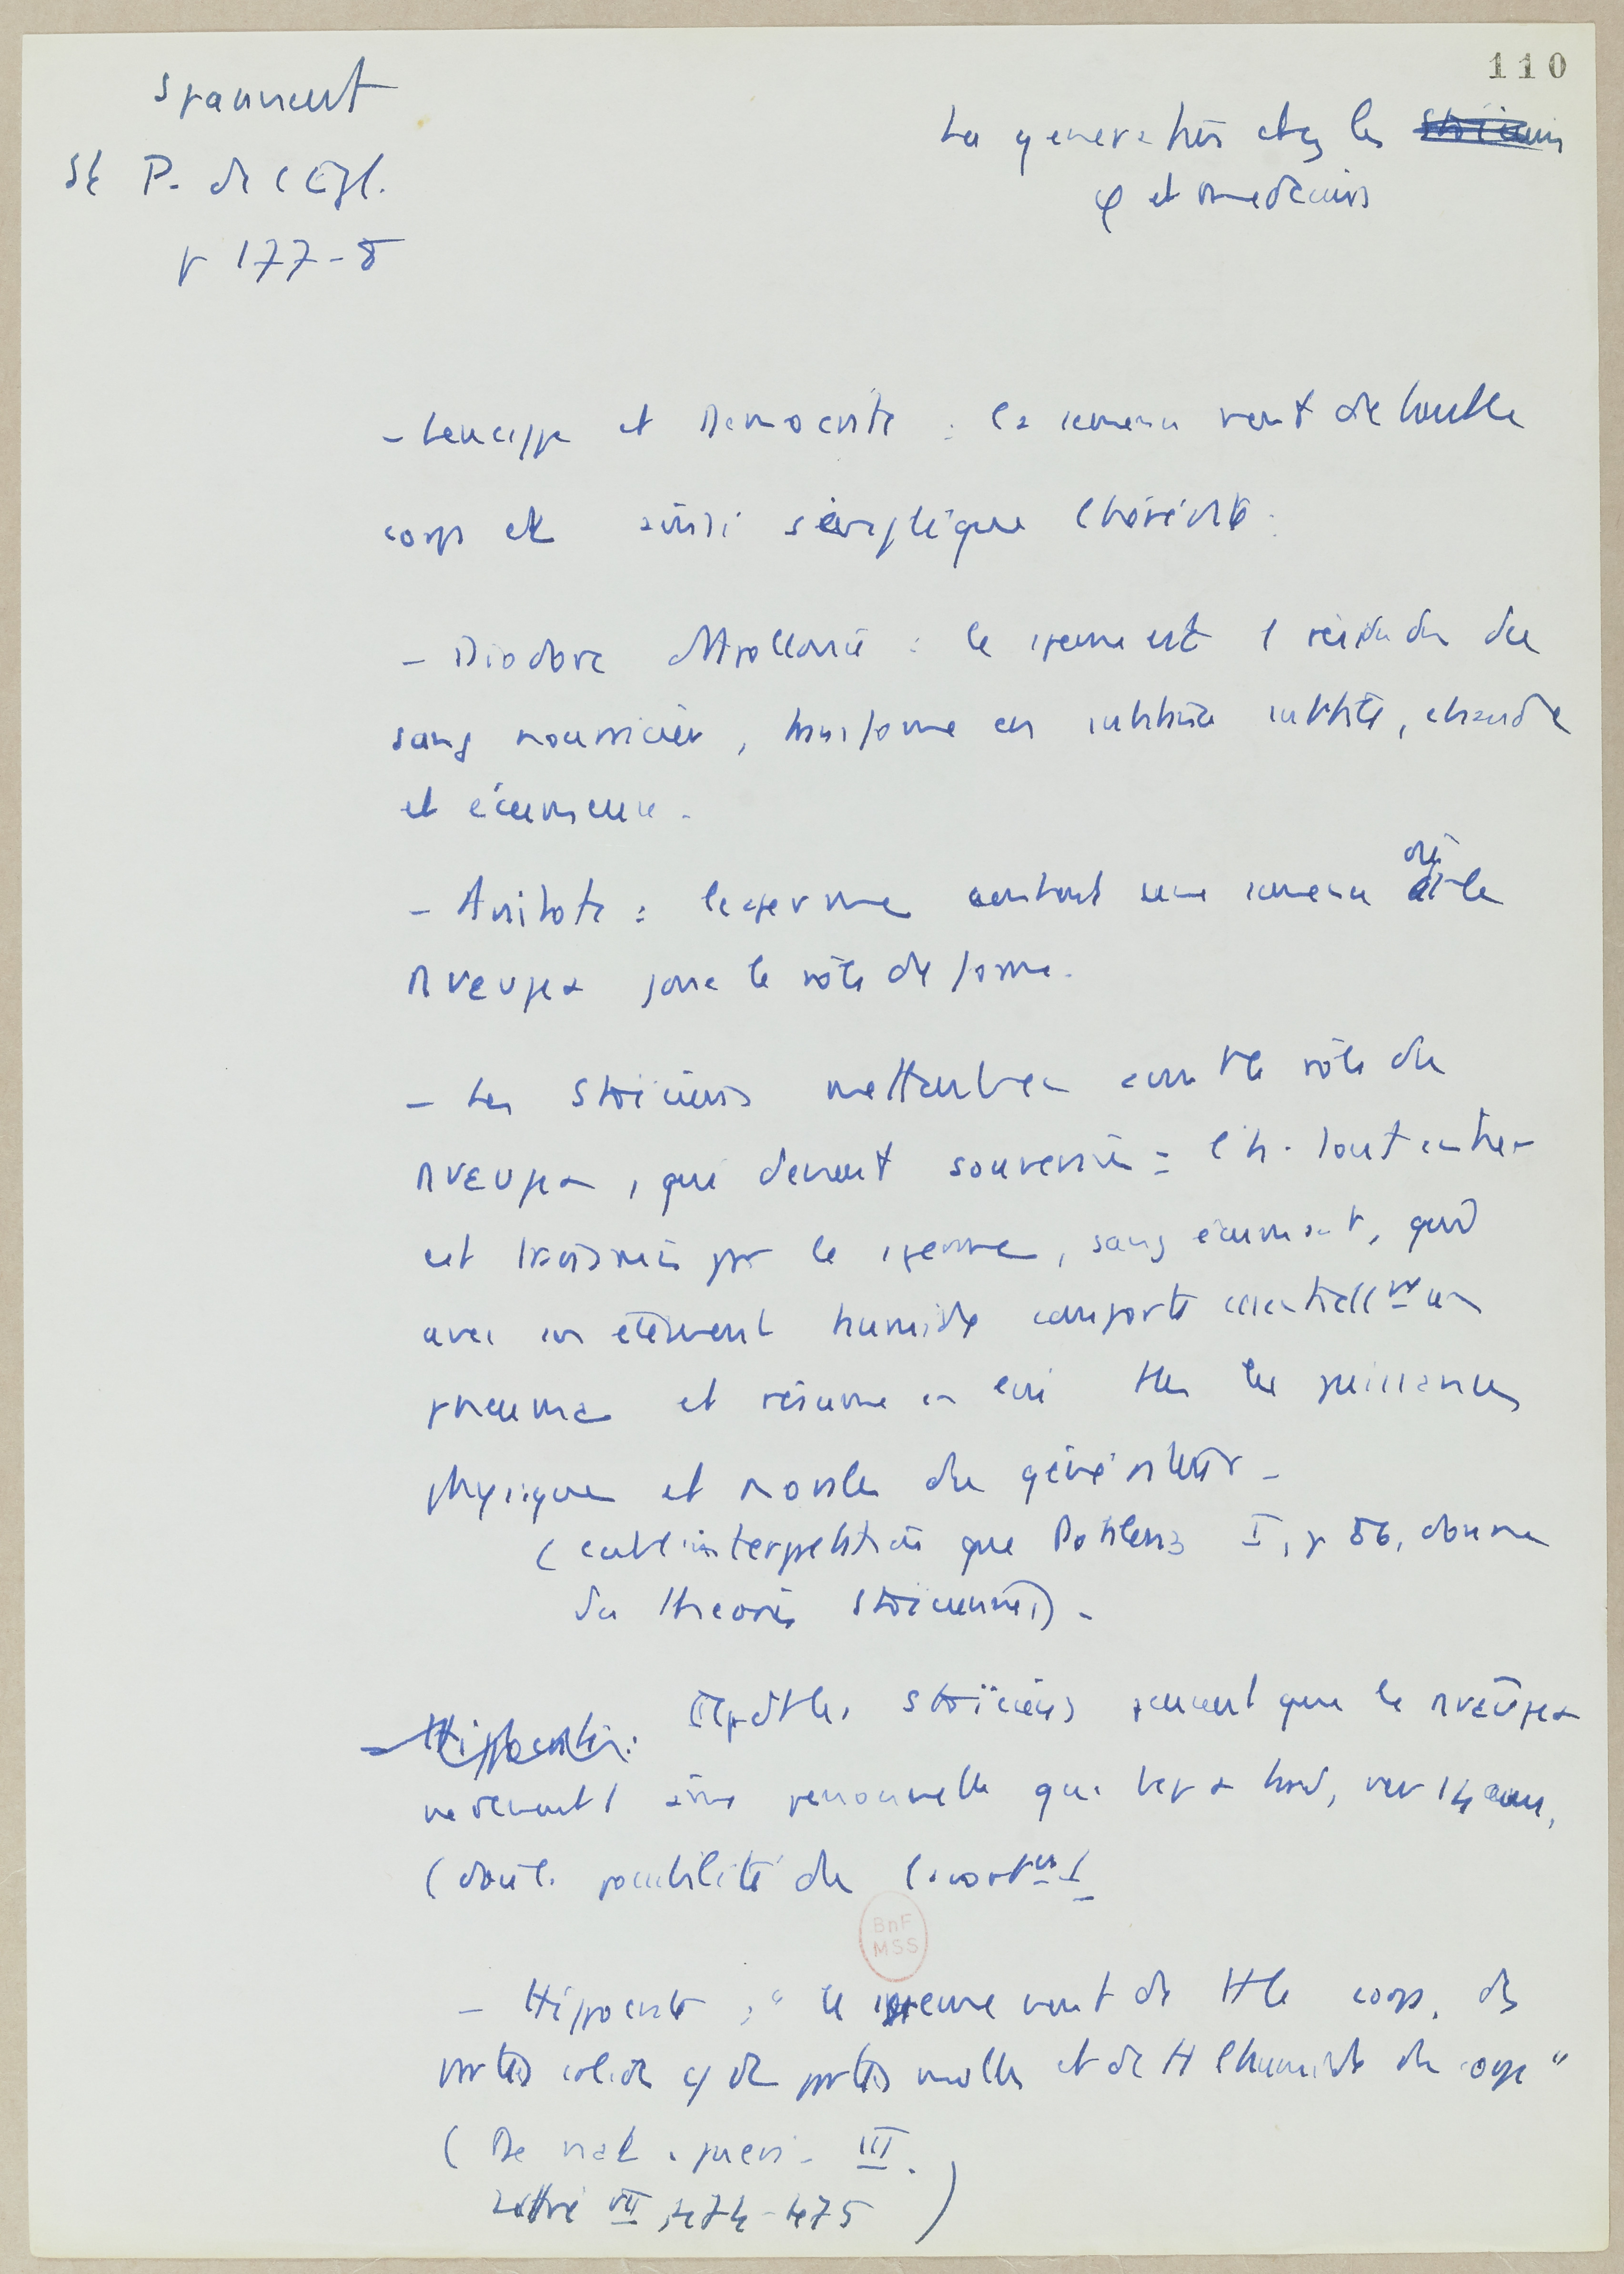 110
Spanneut
St P. de l'Egl.
p 177-8
La génération chez les Stoïciens
φ et médecins
- Leucippe et Démocrite : la semence vient de tout le
corps et ainsi s'explique l'hérédité.
- Diodore d'Apollonie : le sperme est 1 résidu du
sang nourricier, transformé en substance subtile, chaude
et écumeuse.
- Aristote : le sperme contient une semence où le
πνευμα joue le rôle de forme.
- Les Stoïciens mettent en avant le rôle du
πνευμα, qui devient souverain : l'h. tout entier
est transmis par le sperme, sang écumant, qui
avec un élément humide comporte essentiellmt un
pneuma et résume en lui ttes les puissances
physiques et morales du géniteur -
(cette interprétation que Pohlenz I, p 86, donne
des théories stoïciennes) -
- Hippocrate : Stoïciens pensent que le πνεῦμα
ne devient 1 âme personnelle que plus tard, vers 14 ans,
(d'où la possibilité de l'avortmt
BnF
MSS
- Hippocrate : " le sperme vient de tt le corps, des
parties solides cô des parties molles et de tt l'humide du corps "
( De nat. pueri. III.
Littré VII, 474-475 )